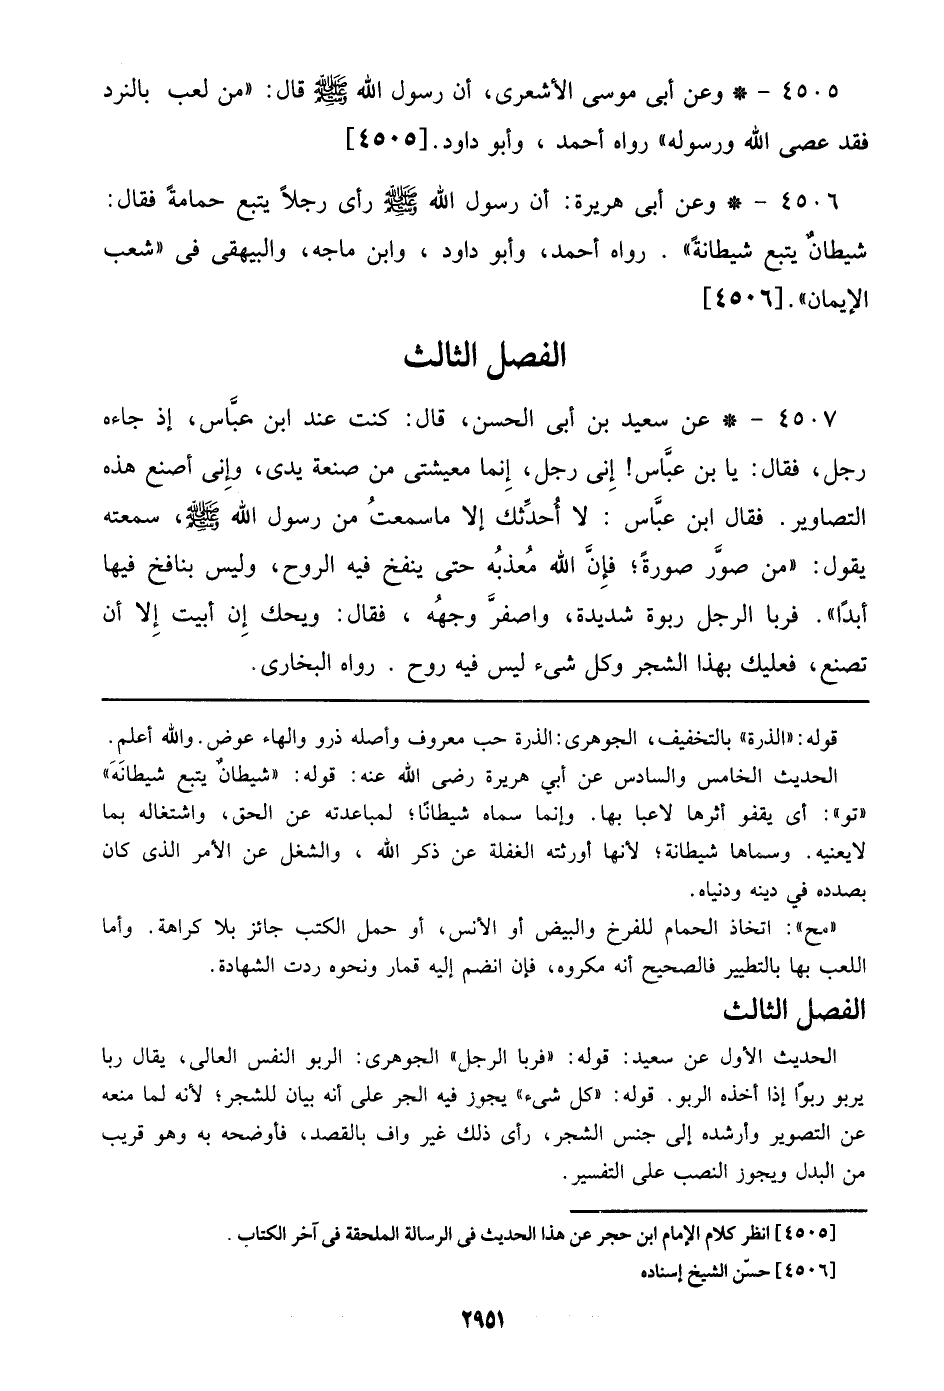 ٤٥٠٥ – * وعن أبى موسى الأشعرى، أن رسول الله ﷺ قال: «من لعب بالنرد
فقد عصى الله ورسوله» رواه أحمد ، وأبو داود.[٤٥٠٥]
٤٥٠٦ – * وعن أبى هريرة: أن رسول الله ﷺ رأى رجلاً يتبع حمامةً فقال:
شيطانٌ يتبع شيطانةً» . رواه أحمد، وأبو داود ، وابن ماجه، والبيهقى فى «شعب
الإيمان».[٤٥٠٦]
الفصل الثالث
٤٥٠٧ – * عن سعيد بن أبى الحسن، قال: كنت عند ابن عبَّاس، إذ جاءه
رجل، فقال: يا بن عبَّاس! إنى رجل، إنما معيشتى من صنعة يدى، وإنى أصنع هذه
التصاوير. فقال ابن عبَّاس : لا أُحدِّثك إلا ماسمعتُ من رسول الله ﷺ، سمعته
يقول: «من صوَّر صورةً؛ فإنَّ الله مُعذبُه حتى ينفخ فيه الروح، وليس بنافخ فيها
أبدًا». فربا الرجل ربوة شديدة، واصفرَّ وجههُ ، فقال: ويحك إن أبيت إلا أن
تصنع، فعليك بهذا الشجر وكل شىء ليس فيه روح . رواه البخارى.
قوله:«الذرة» بالتخفيف، الجوهرى:الذرة حب معروف وأصله ذرو والهاء عوض.والله أعلم.
الحديث الخامس والسادس عن أبي هريرة رضى الله عنه: قوله: «شيطانٌ يتبع شيطانَةَ»
«تو»: أى يقفو أثرها لاعبا بها. وإنما سماه شيطانًا؛ لمباعدته عن الحق، واشتغاله بما
لايعنيه. وسماها شيطانة؛ لأنها أورثته الغفلة عن ذكر الله ، والشغل عن الأمر الذى كان
بصدده في دينه ودنياه.
«مح»: اتخاذ الحمام للفرخ والبيض أو الأنس، أو حمل الكتب جائز بلا كراهة. وأما
اللعب بها بالتطيير فالصحيح أنه مكروه، فإن انضم إليه قمار ونحوه ردت الشهادة.
الفصل الثالث
الحديث الأول عن سعيد: قوله: «فربا الرجل» الجوهرى: الربو النفس العالى، يقال ربا
يربو ربوًا إذا أخذه الربو. قوله: «كل شىء» يجوز فيه الجر على أنه بيان للشجر؛ لأنه لما منعه
عن التصوير وأرشده إلى جنس الشجر، رأى ذلك غير واف بالقصد، فأوضحه به وهو قريب
من البدل ويجوز النصب على التفسير.
[٤٥٠٥] انظر كلام الإمام ابن حجر عن هذا الحديث فى الرسالة الملحقة فى آخر الكتاب .
[٤٥٠٦] حسّن الشيخ إسناده
٢٩٥١